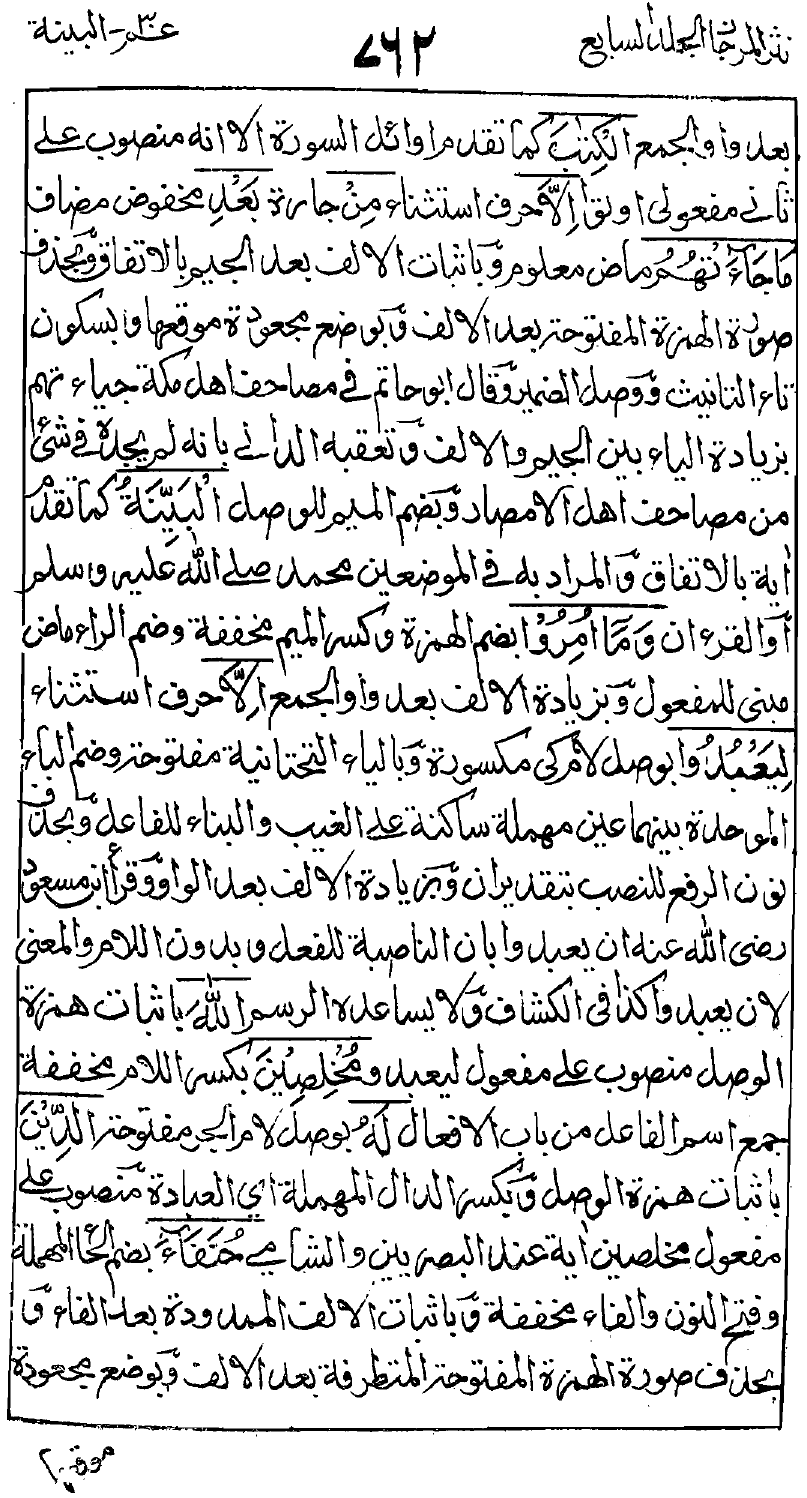 نثر المرجان الجلد السابع
٧٦٢
عم٣٠ - البينة
بعد واو الجمع الْكِتٰبَ كما تقدم اوائل السورة الا انه منصوب على
ثاني مفعولى اوتوا اِلَّا حرف استثناء مِنْ جارة بَعْدِ مخفوض مضاف
مَا جَآءَتْهُمُ ماض معلوم وَباثبات الالف بعد الجيم بالاتفاق وَبحذف
صورة الهمزة المفتوحة بعد الالف وَبوضع مجعودة موقعها وبسكون
تاء التانيث وَوصل الضمير وَقال ابو حاتم في مصاحف اهل مكة جياءتهم
بزيادة الياء بين الجيم والالف وَتعقبه الداني بانه لم يجده في شئ
من مصاحف اهل الامصار وَبضم الميم للوصل الْبَيِّنَةُ كما تقدم
اٰية بالاتفاق وَالمراد به في الموضعين محمد صلى الله عليه وسلم
اَوالقرءان وَمَآ اُمِرُوْٓا بضم الهمزة وكسر الميم مخففة وضم الراء ماض
مبنى للمفعول وَبزيادة الالف بعد واو الجمع اِلَّا حرف استثناء
لِيَعْبُدُوا بوصل لام كى مكسورة وَبالياء التحتانية مفتوحة وضم الباء
الموحدة بينهما عين مهملة ساكنة على الغيب والبناء للفاعل وَبحذف
نون الرفع للنصب بتقدير ان وَبزيادة الالف بعد الواو وَقرأ ابن مسعود
رضى الله عنه ان يعبدوا بان الناصبة للفعل وبدون اللام والمعنى
لان يعبدوا كذا فى الكشاف وَلا يساعده الرسم اللّٰهَ باثبات همزة
الوصل منصوب على مفعول ليعبدو مُخْلِصِيْنَ بكسر اللام مخففة
جمع اسم الفاعل من باب الافعال لَهُ بوصل لام الجر مفتوحة الدِّيْنَ
باثبات همزة الوصل وَبكسر الدال المهملة اي العبادة منصوب على
مفعول مخلصين اٰية عند البصريين والشامي حُنَفَآءَ بضم الحاء المهملة
وفتح النون والفاء مخففة وَباثبات الالف الممدودة بعد الفاء وَ
بحذف صورة الهمزة المفتوحة المتطرفة بعد الالف وَبوضع مجعودة
موقعها